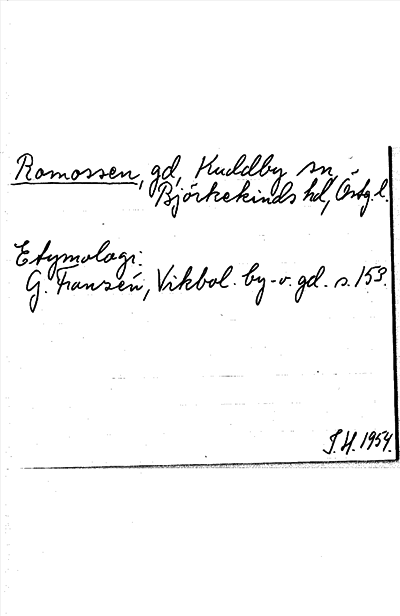 Romossen, gd, Kuddby sn,
Björkekinds hd, Östg. l.
Etymologi:
G. Franzén, Vikbol. by- o. gd. s. 153.
J. H. 1954.